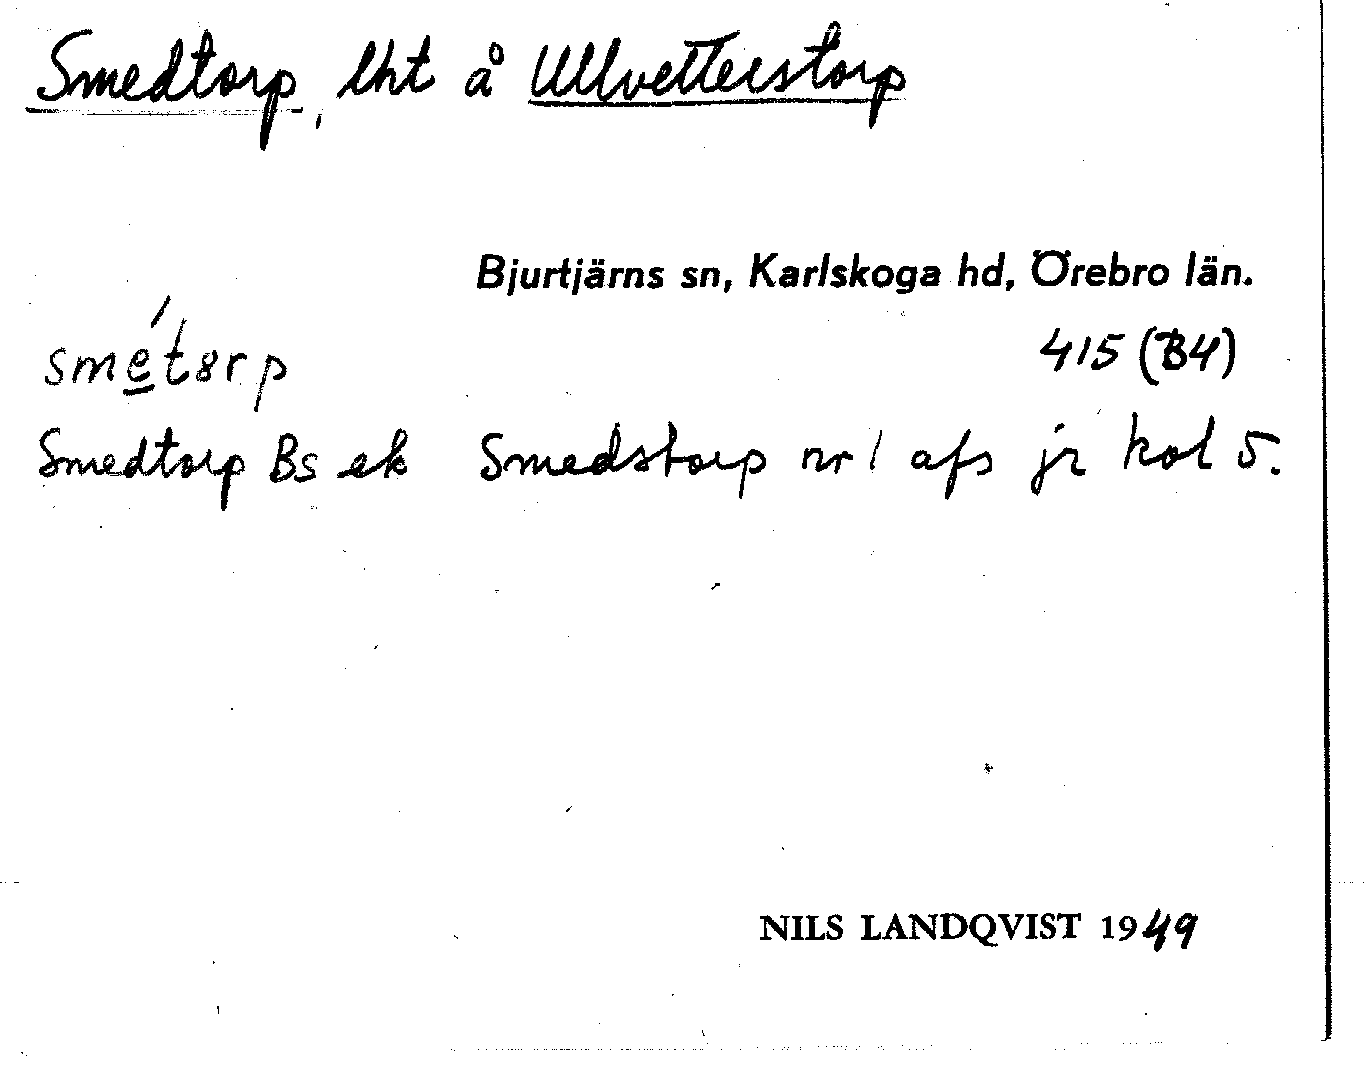 Smedtorp, lht å Ullvetterstorp
Bjurtjärns sn, Karlskoga hd, Örebro län.
smét8rp
415 (B4)
Smedtorp Bs ek Smedstorp nr 1 afs jr kol 5.
NILS LANDQVIST 1949